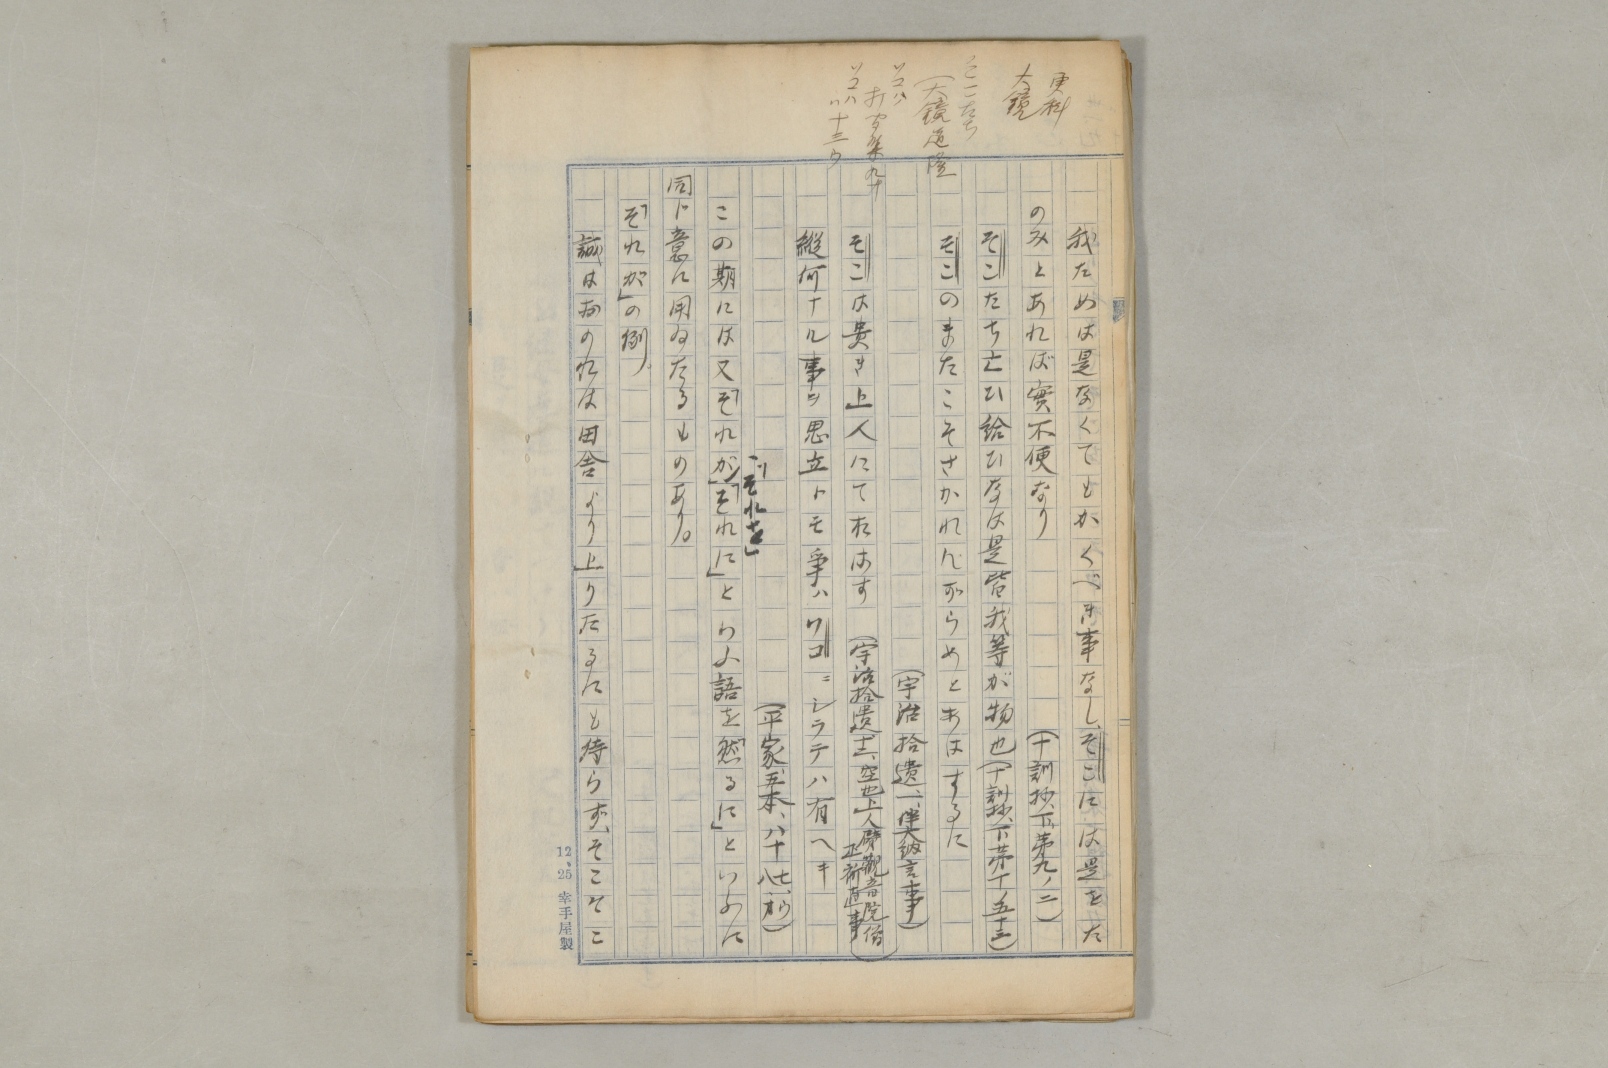 更科
大鏡
そこたち
(大鏡道隆
ソコハ
ソコハ
〃十三ウ
我ためは是なくてもかくべき事なし、そこには是をた
のみとあれば實不便なり (十訓抄、下、第九ノ二)
そこたち亡ひ給ひなは是皆我等が物也(十訓抄、下第十ノ五十三)
そこのまたこそさかれんずらめとあはするに
(宇治拾遺一、伴大納言事)
そこは貴き上人にておはす (宇治拾遺十二、空也上人臂觀音院僧
正祈直事)
縦何ナル事ヲ思立トモ爭ハワコニシラテハ有ヘキ
(平家、五本、八十七、八ウ、オ)
この期には又「それが」「それに」とりふ語を「然るに」といふに
「それを」
同じ意に用ゐたるものあり。
「それが」の例、
誠はおのれは田舎より上りたるにも侍らず、そこそこ
12、25 幸手屋製